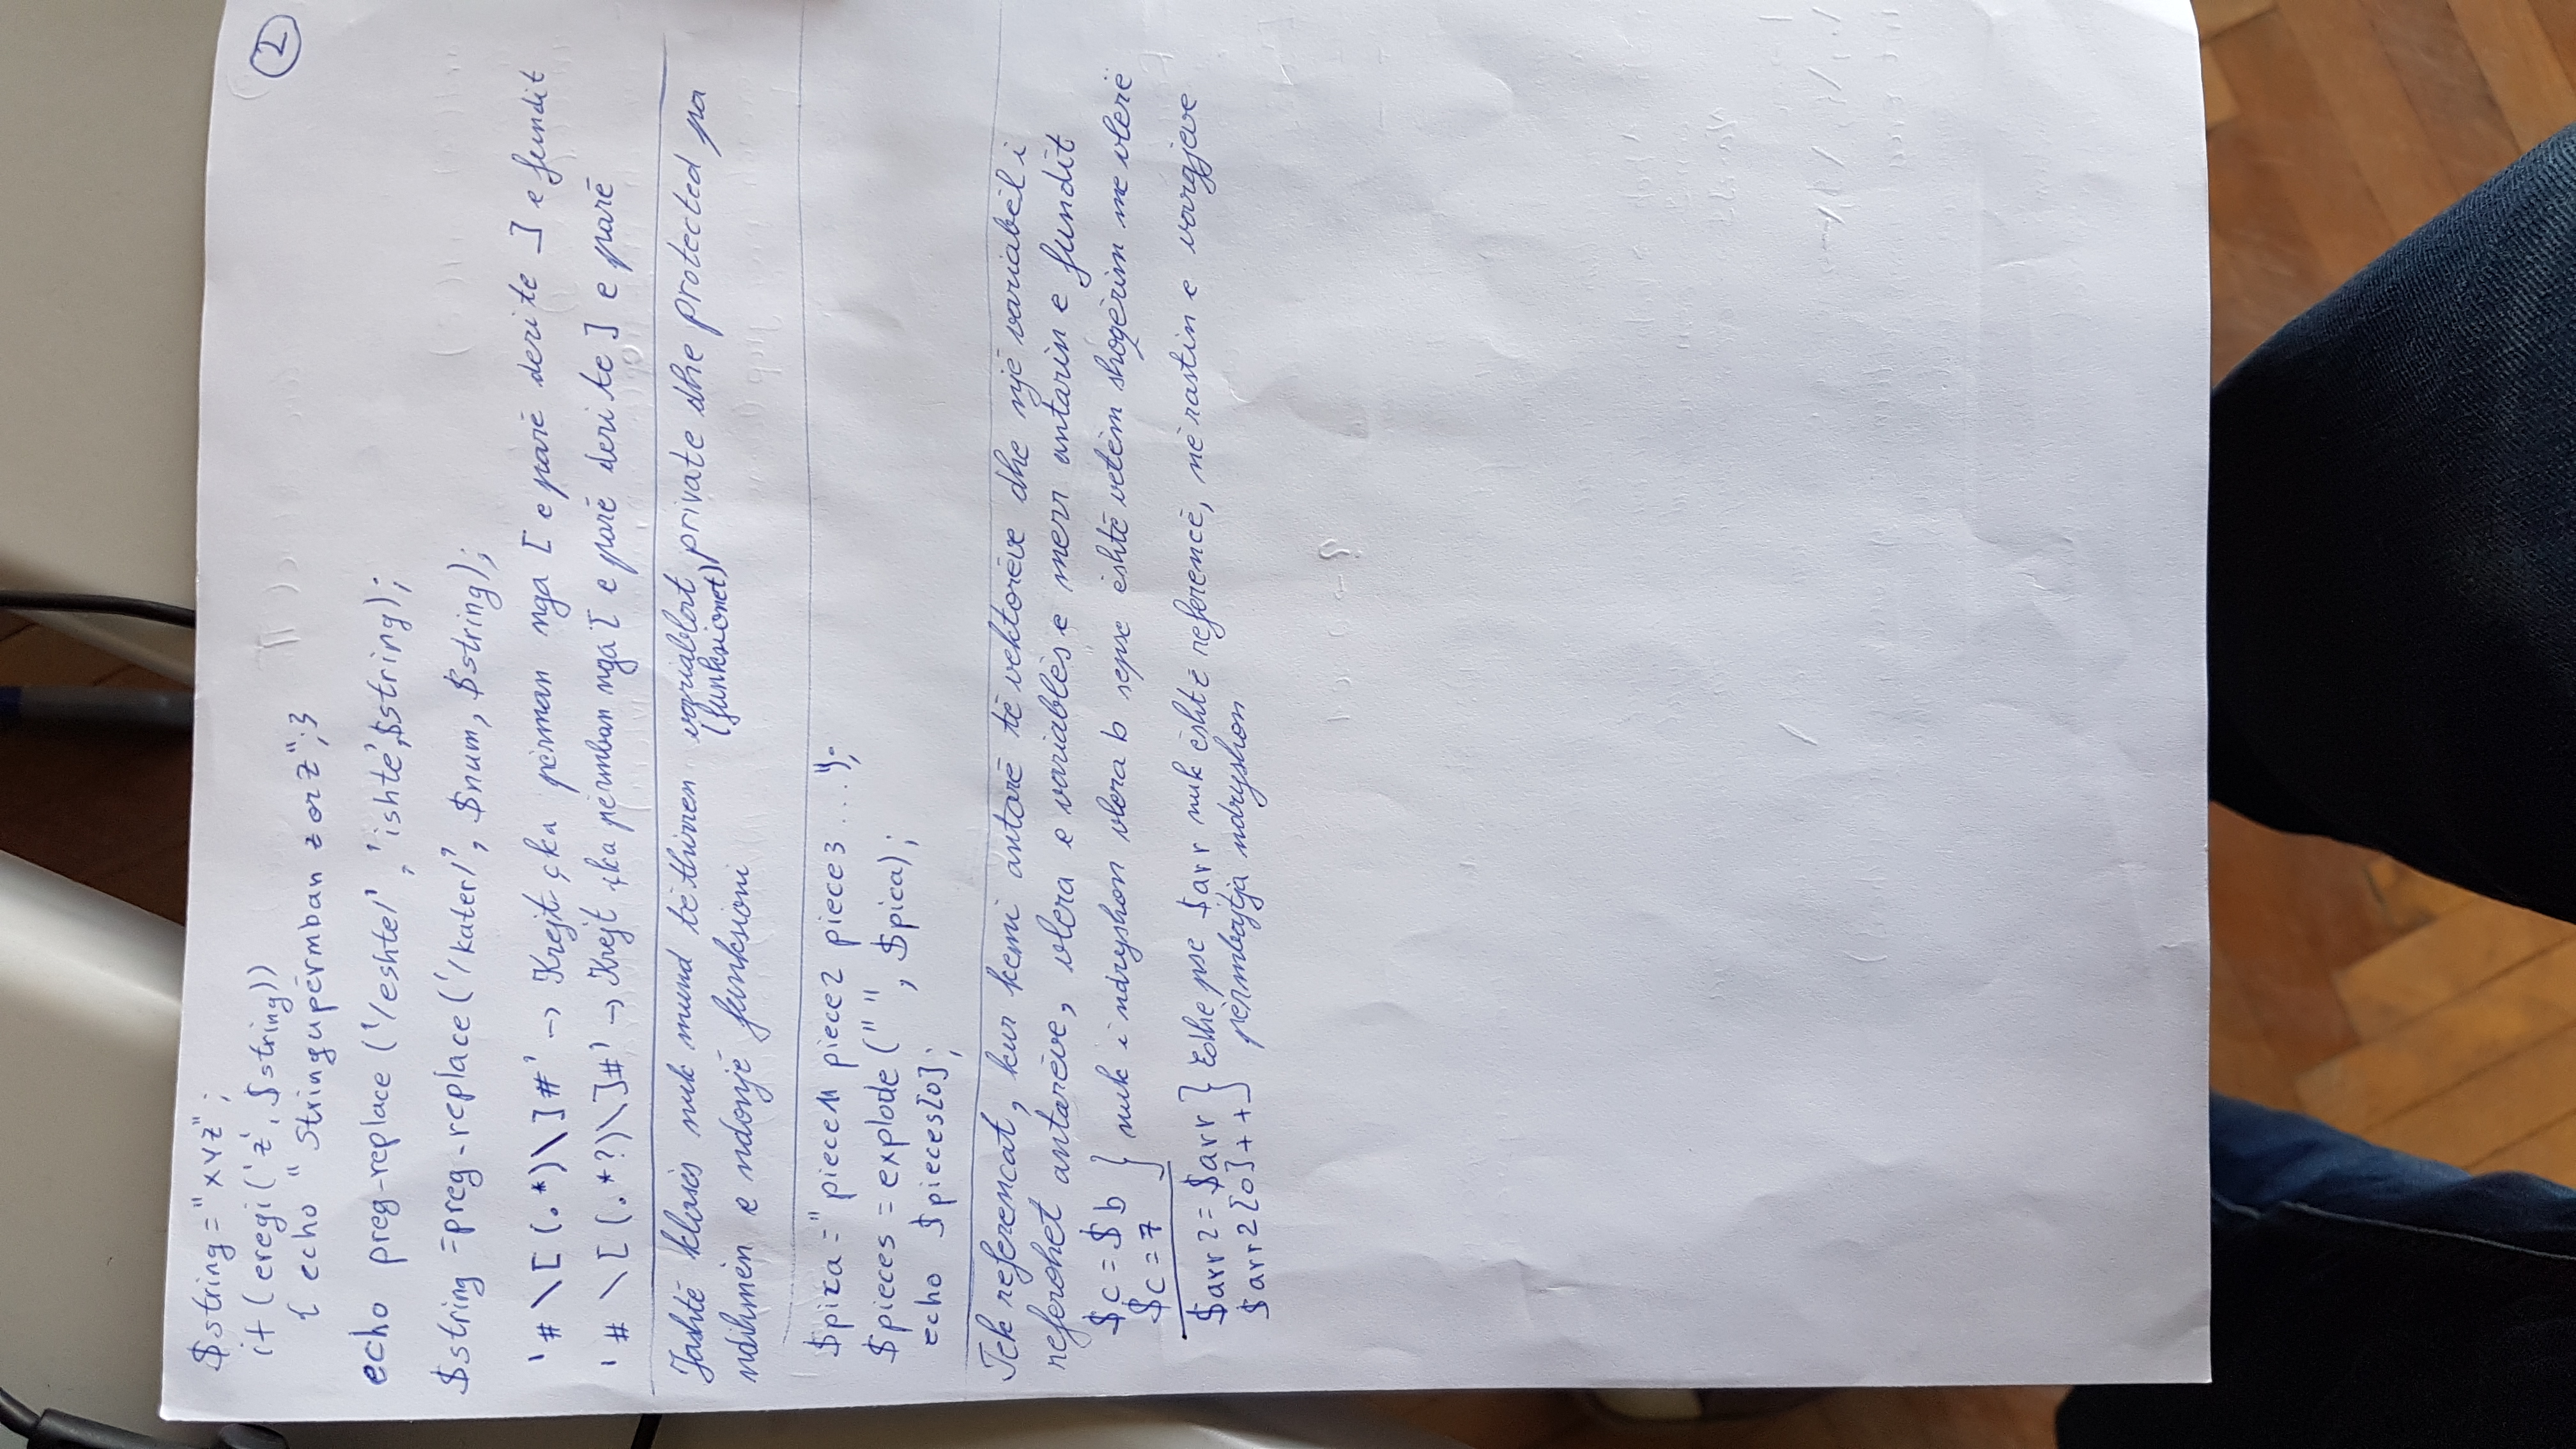 $string="xyz";
②
if(eregi('z', $string))
{ echo "Stringu përmban z or Z";}
echo preg-replace ('/eshte/', 'ishte',$string);
$string =preg-replace('/kater/', $num, $string);
'#\[(.*)\]#' → Krejt çka përman nga [ e parë deri te ] e fundit
'#\[(.*?)\]#' → Krejt çka përmban nga [ e parë deri te ] e parë
Jashtë klasës nuk mund të thirren variablat private dhe protected pa
(funksionet)
ndihmën e ndonjë funksioni
$pizza="piece1 piece2 piece3 ...";
$pieces = explode (" ", $pica);
echo $pieces[0];
Tek referencat, kur kemi antarë të vektorëve dhe një variabël i
referohet antarëve, vlera e variablës e merr antarin e fundit
$c = $b } nuk i ndryshon vlera b sepse është vetëm shoqërim me vlerë
$c = 7
$arr2 = $arr } Edhe pse $arr nuk është referencë, në rastin e vargjeve
$arr2[0]++ përmbajtja ndryshon